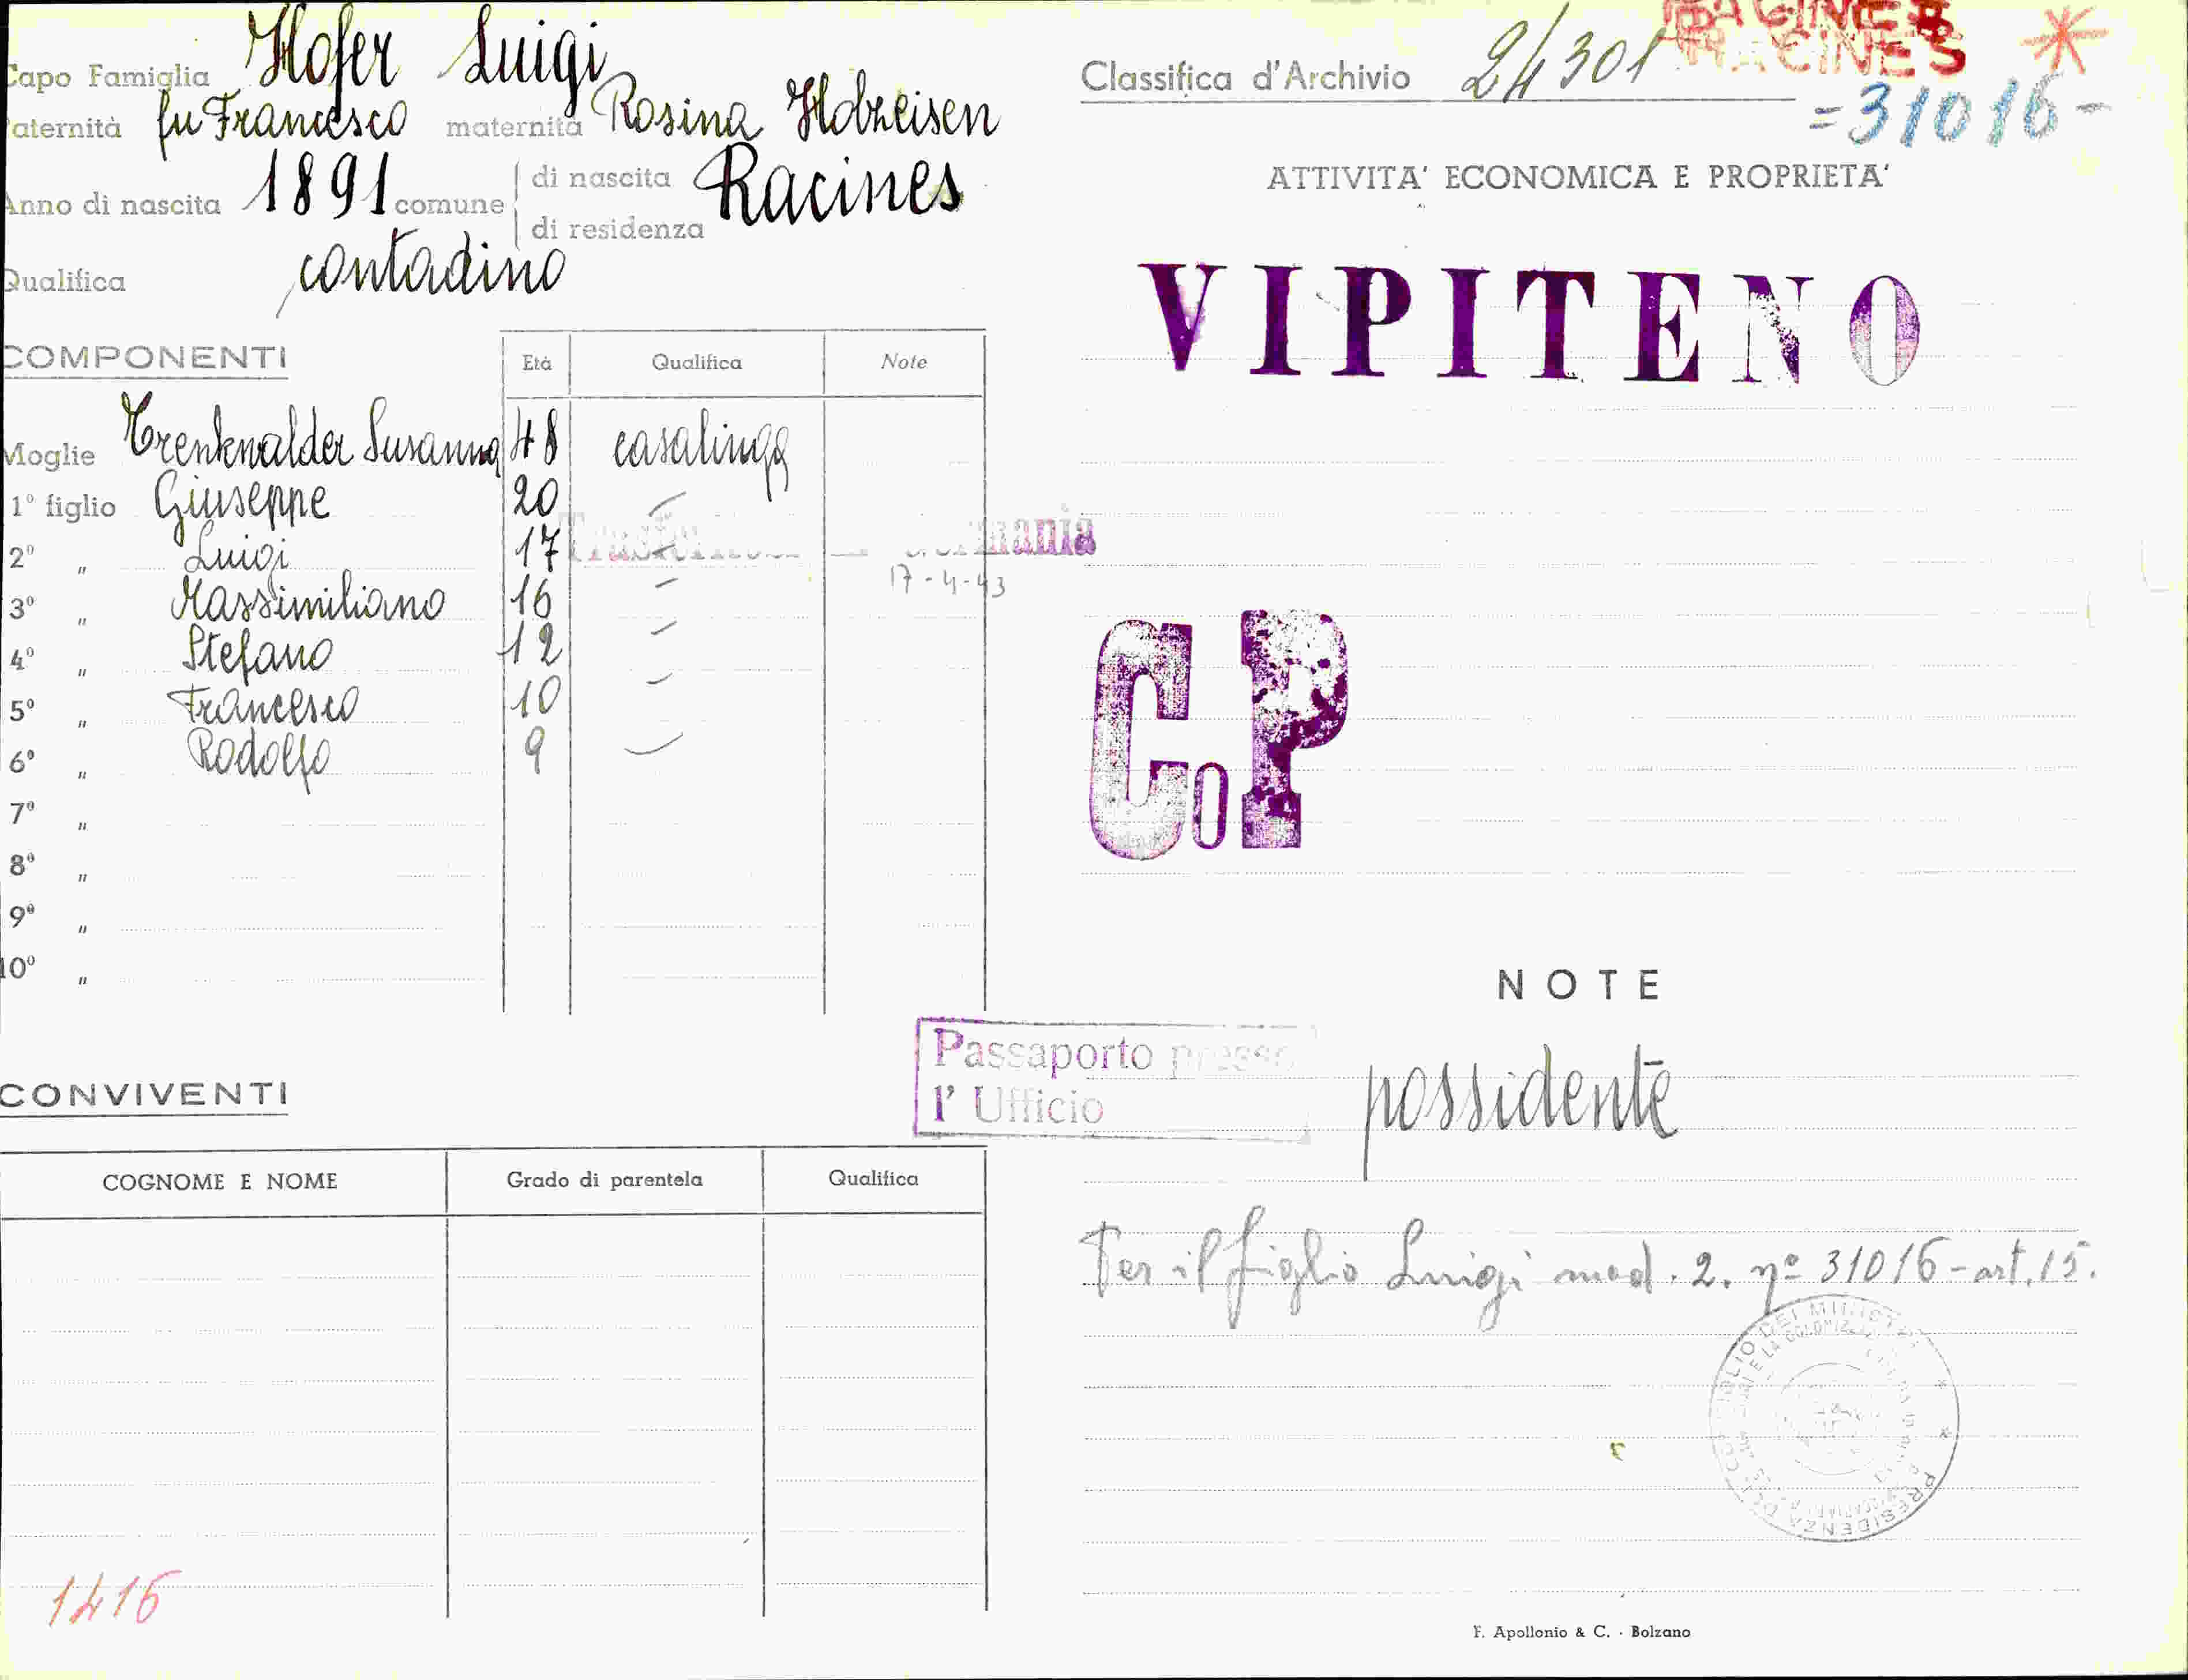 Capo Famiglia Hofer Luigi
Paternità fu Francesco maternità Rosina Holzeisen
Anno di nascita 1891 comune di nascita Racines
di residenza
Qualifica contadino
COMPONENTI Età Qualifica Note
Moglie Trenkwalder Susanna 48 casalinga
1º figlio Giuseppe 20
2º " Luigi 17 Trasferitosi in Germania
17-4-43
3º " Massimiliano 16
4º " Stefano 12
5º " Francesco 10
6º " Rodolfo 9
7º "
8º "
9º "
10º "
CONVIVENTI
COGNOME E NOME Grado di parentela Qualifica
1416
Classifica d'Archivio 24/301
RACINES
RACINES
=31016-
ATTIVITA' ECONOMICA E PROPRIETA'
VIPITENO
CoP
NOTE
Passaporto presso
l' Ufficio
possidente
Per il figlio Luigi mod. 2. nº 31016-art.15.
F. Apollonio & C. - Bolzano